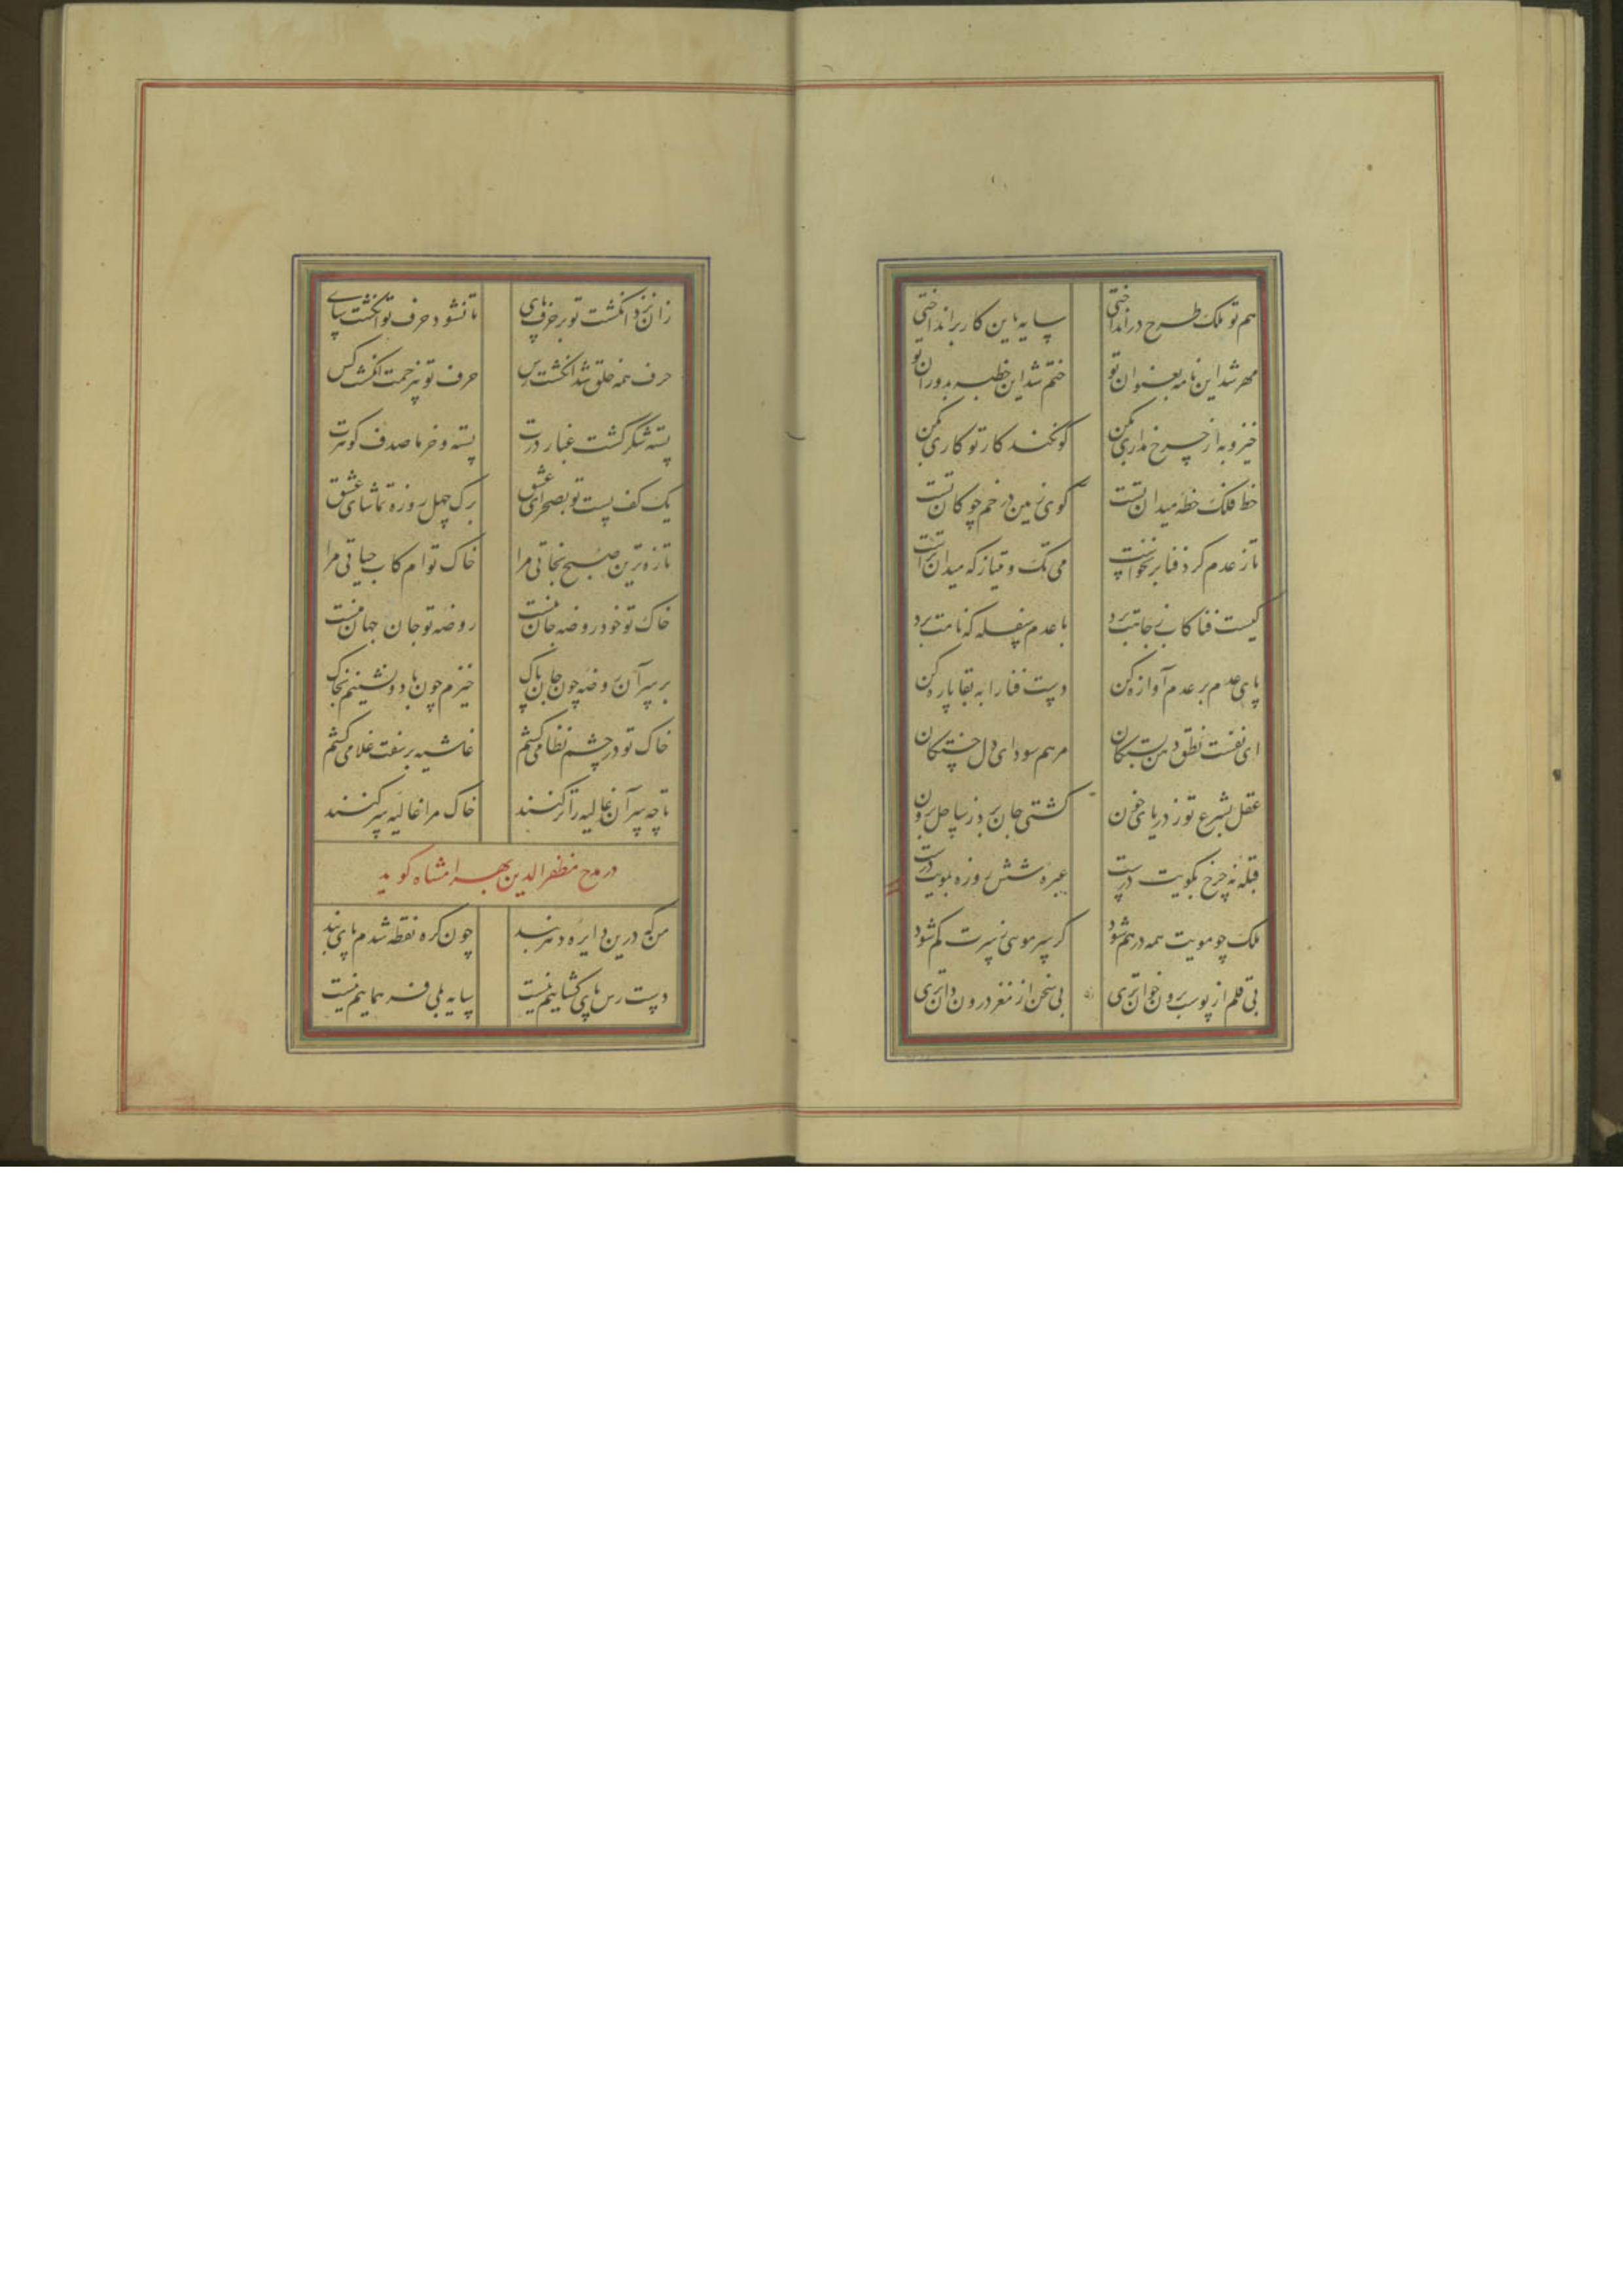 هم تو فلک طرح درانداختی سایه باین کار برانداختی
مهر شد این نامه بعنوان تو ختم شد این خطبه بدوران تو
خیز و به از چرخ مداری بکن کو نکند کار تو کاری بکن
خط فلک خطه میدان تست کوی زمین در خم چوکان تست
تا ز عدم کرد فنا برنخواست می تک و میتاز که میدان تراست
کیست فنا کاب ز جامت برد یا عدم سفله که نامت برد
پای عدم بر عدم آواره کن دست فنا را به بقا پاره کن
ای نفست نطق دهن بستکان مرهم سودای دل خستکان
عقل بشرع تو ز دریای خون کشتی جان برد ز ساحل برون
قبله نه چرخ بکویت درست عبره شش روزه بمویت درست
ملک چو مویت همه درهم شود کر سر موئی ز سرت کم شود
بی قلم از پوست برون خوان تری بی سخن از مغز درون دان تری
زان نزد انکشت تو بر حرف پای تا نشود حرف تو انکشت سای
حرف همه خلق شد انکشت رس حرف تو بی زحمت انکشت کس
پسته شکر کشت غبار درت پسته و خرما صدف کوثرت
یک کف پست تو بصحرای عشق برک چهل روزه تماشای عشق
تازه ترین صبح نجاتی مرا خاک توام کاب حیاتی مرا
خاک تو خود روضه جان منست روضه تو جان جهان منست
بر سر آن روضه چون جان پاک خیزم چون باد و نشینم بخاک
خاک تو در چشم نظامی کشم غاشیه بر سفت غلامی کشم
تا چه سر آن غالیه را تر کنند خاک مرا غالیه سر کنند
در مدح مظفرالدین بهرامشاه کوید
من که درین دایره دهر بند چون کره نقطه شدم پای بند
دست رس پای کشاییم نیست سایه بلی فر هماییم نیست